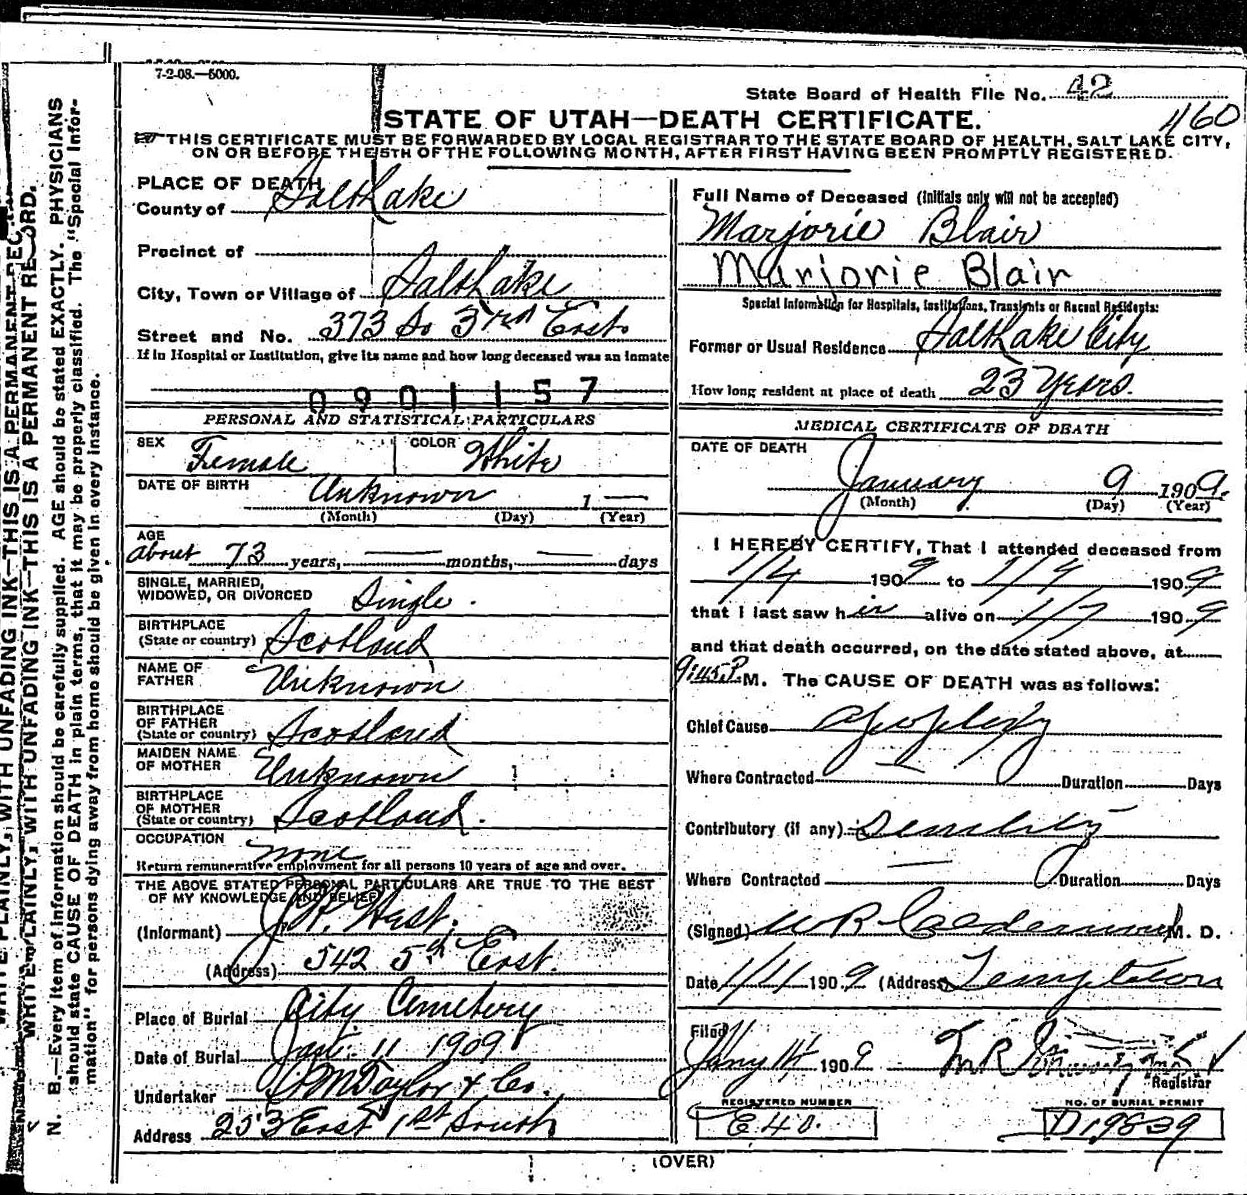 7-2-08.—5000.
State Board of Health File No. 42
1160
STATE OF UTAH—DEATH CERTIFICATE.
THIS CERTIFICATE MUST BE FORWARDED BY LOCAL REGISTRAR TO THE STATE BOARD OF HEALTH, SALT LAKE CITY,
ON OR BEFORE THE 5TH OF THE FOLLOWING MONTH, AFTER FIRST HAVING BEEN PROMPTLY REGISTERED.
PLACE OF DEATH
County of Salt Lake
Precinct of
City, Town or Village of Salt Lake
Street and No. 373 So 3rd East
If in Hospital or Institution, give its name and how long deceased was an inmate
0901157
PERSONAL AND STATISTICAL PARTICULARS
SEX Female COLOR White
DATE OF BIRTH Unknown 1 —
(Month) (Day) (Year)
AGE
about 73 years, — months, — days
SINGLE, MARRIED,
WIDOWED, OR DIVORCED Single.
BIRTHPLACE
(State or country) Scotland
NAME OF
FATHER Unknown
BIRTHPLACE
OF FATHER
(State or country) Scotland
MAIDEN NAME
OF MOTHER Unknown
BIRTHPLACE
OF MOTHER
(State or country) Scotland.
OCCUPATION
none
Return remunerative employment for all persons 10 years of age and over.
THE ABOVE STATED PERSONAL PARTICULARS ARE TRUE TO THE BEST
OF MY KNOWLEDGE AND BELIEF
(Informant) West.
(Address) 542 5th East.
Place of Burial City Cemetery
Date of Burial Jan. 11 1909
Undertaker Taylor & Co.
Address 253 East 1st South
Full Name of Deceased (Initials only will not be accepted)
Marjorie Blair
Marjorie Blair
Special Information for Hospitals, Institutions, Transients or Recent Residents:
Former or Usual Residence Salt Lake City
How long resident at place of death 23 Years.
MEDICAL CERTIFICATE OF DEATH
DATE OF DEATH
January 9 1909.
(Month) (Day) (Year)
I HEREBY CERTIFY, That I attended deceased from
1/4 1909 to 1/9 1909
that I last saw her alive on 1/7 1909
and that death occurred, on the date stated above, at
9:45 P. M. The CAUSE OF DEATH was as follows:
Chief Cause Apoplexy
Where Contracted — Duration Days
Contributory (if any) Senility
Where Contracted — Duration Days
(Signed) M. D.
Date 1/11 1909 (Address) Templeton
Filed
Jany 14 1909
Registrar
REGISTERED NUMBER
E 40.
NO. OF BURIAL PERMIT
D19839
(OVER)
WRITE PLAINLY, WITH UNFADING INK—THIS IS A PERMANENT REC
WRITE PLAINLY, WITH UNFADING INK—THIS IS A PERMANENT RECORD.
N. B.—Every item of information should be carefully supplied. AGE should be stated EXACTLY. PHYSICIANS
should state CAUSE OF DEATH in plain terms, that it may be properly classified. The "Special Infor-
mation" for persons dying away from home should be given in every instance.